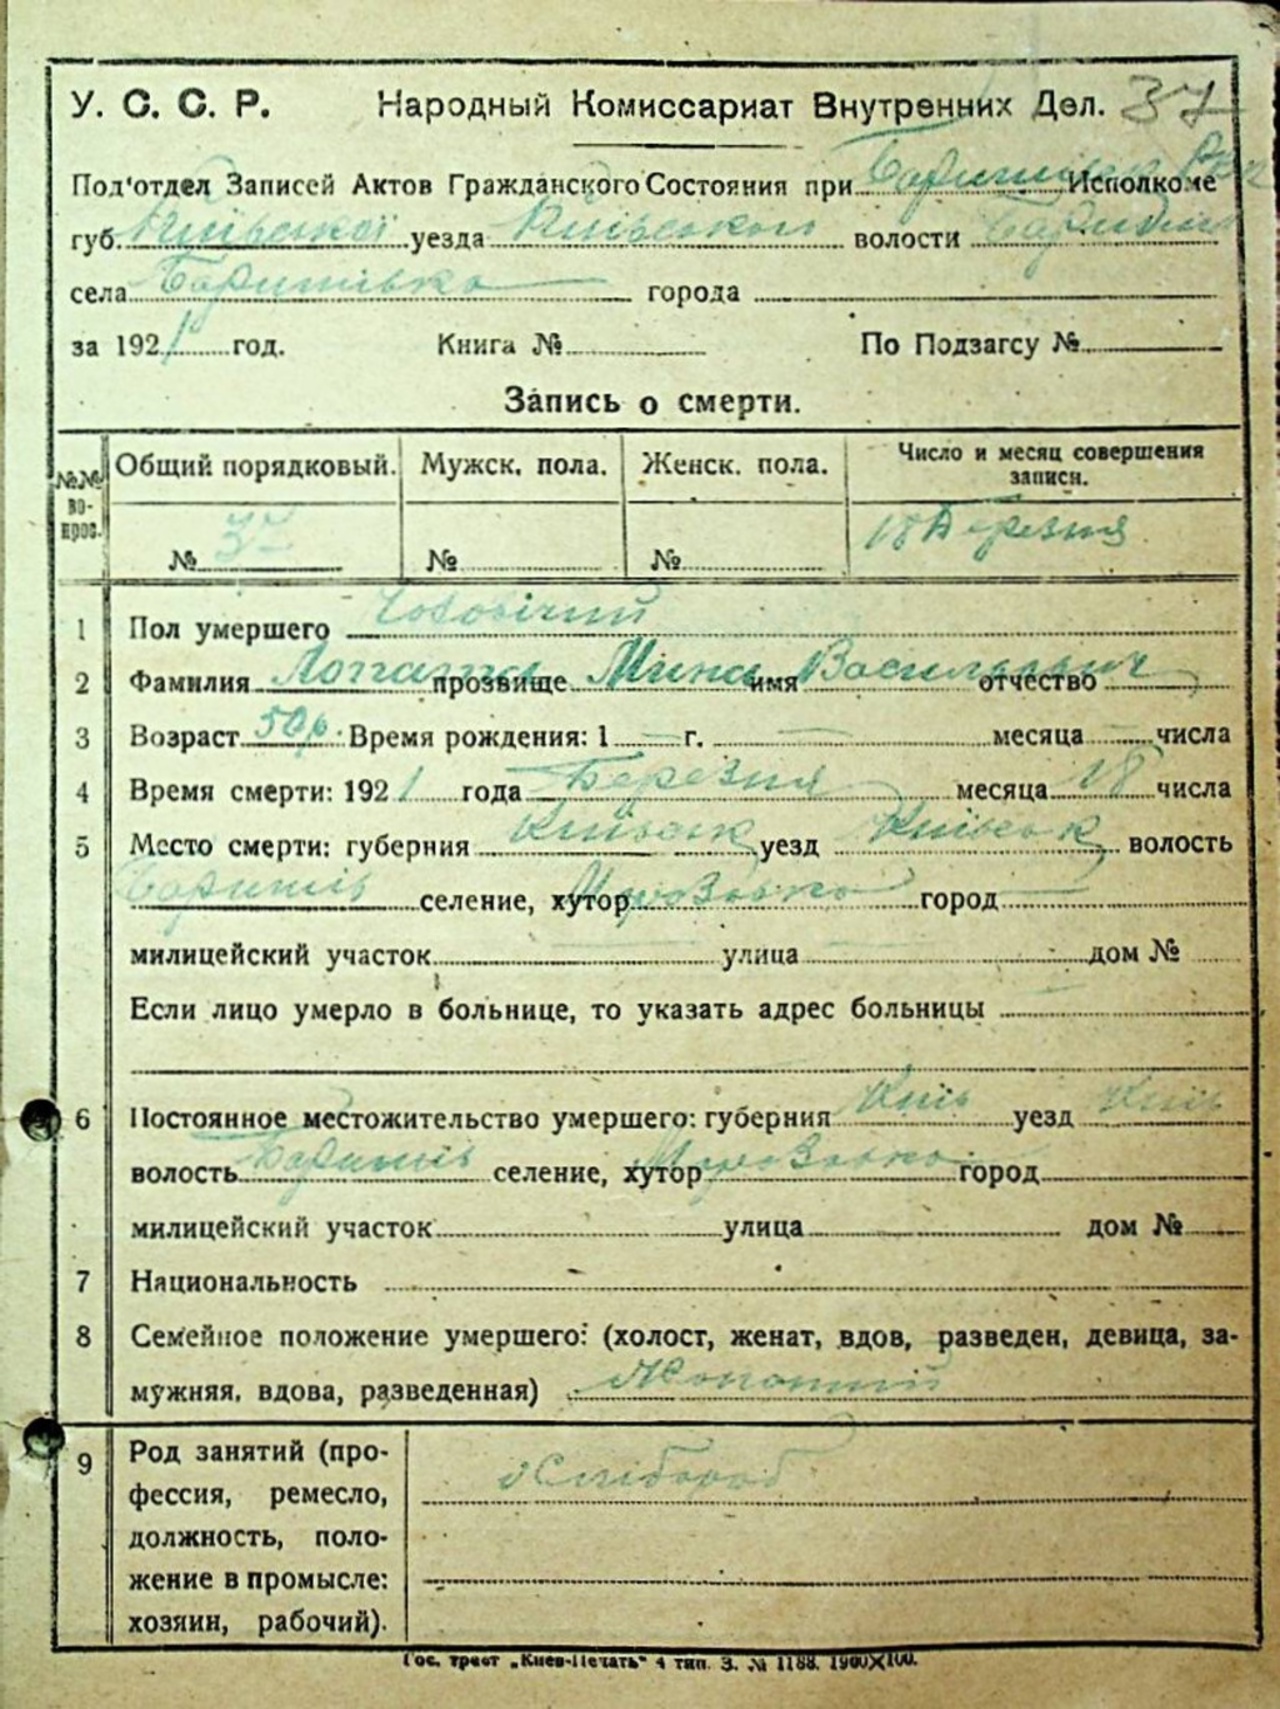 У. С. С. Р. Народный Комиссариат Внутренних Дел. 37
Под'отдел Записей Актов Гражданского Состояния при Исполкоме
губ. Київської уезда Київського волости
села Баришівка города
за 1921 год. Книга № По Подзагсу №
Запись о смерти.
№№ вопрос. Общий порядковый. Мужск. пола. Женск. пола. Число и месяц совершения записи.
№ 37 № № 18 Березня
1 Пол умершего Чоловічий
2 Фамилия Лопата прозвище Мина имя Васильевич отчество
3 Возраст 50 р. Время рождения: 1 — г. — месяца — числа
4 Время смерти: 1921 года Березня месяца 18 числа
5 Место смерти: губерния Київськ уезд Київськ волость
Баришів селение, хутор город —
милицейский участок — улица — дом №
Если лицо умерло в больнице, то указать адрес больницы —
6 Постоянное местожительство умершего: губерния Київ уезд Київ
волость Баришів селение, хутор Морозовка город
милицейский участок улица дом №
7 Национальность
8 Семейное положение умершего: (холост, женат, вдов, разведен, девица, за-
мужняя, вдова, разведенная) Жонатий
9 Род занятий (про-
фессия, ремесло,
должность, поло-
жение в промысле:
хозяин, рабочий).
Хлібороб
Гос. трест „Киев-Печать" 4 тип. З. № 1188. 1900×100.